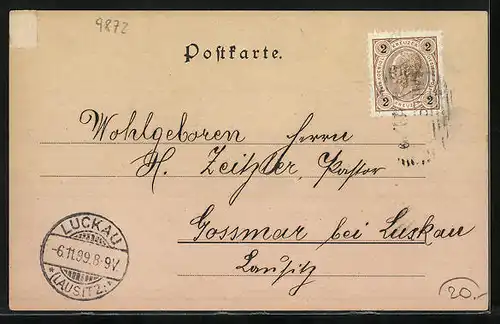 9872
Postkarte.
2 2
2 2
Wohlgeboren Herrn
H. Zeitzler, Pastor
Gossmar bei Luckau
Lausitz
LUCKAU
-6.11.99.8-9V.
*(LAUSITZ.)*
20.-